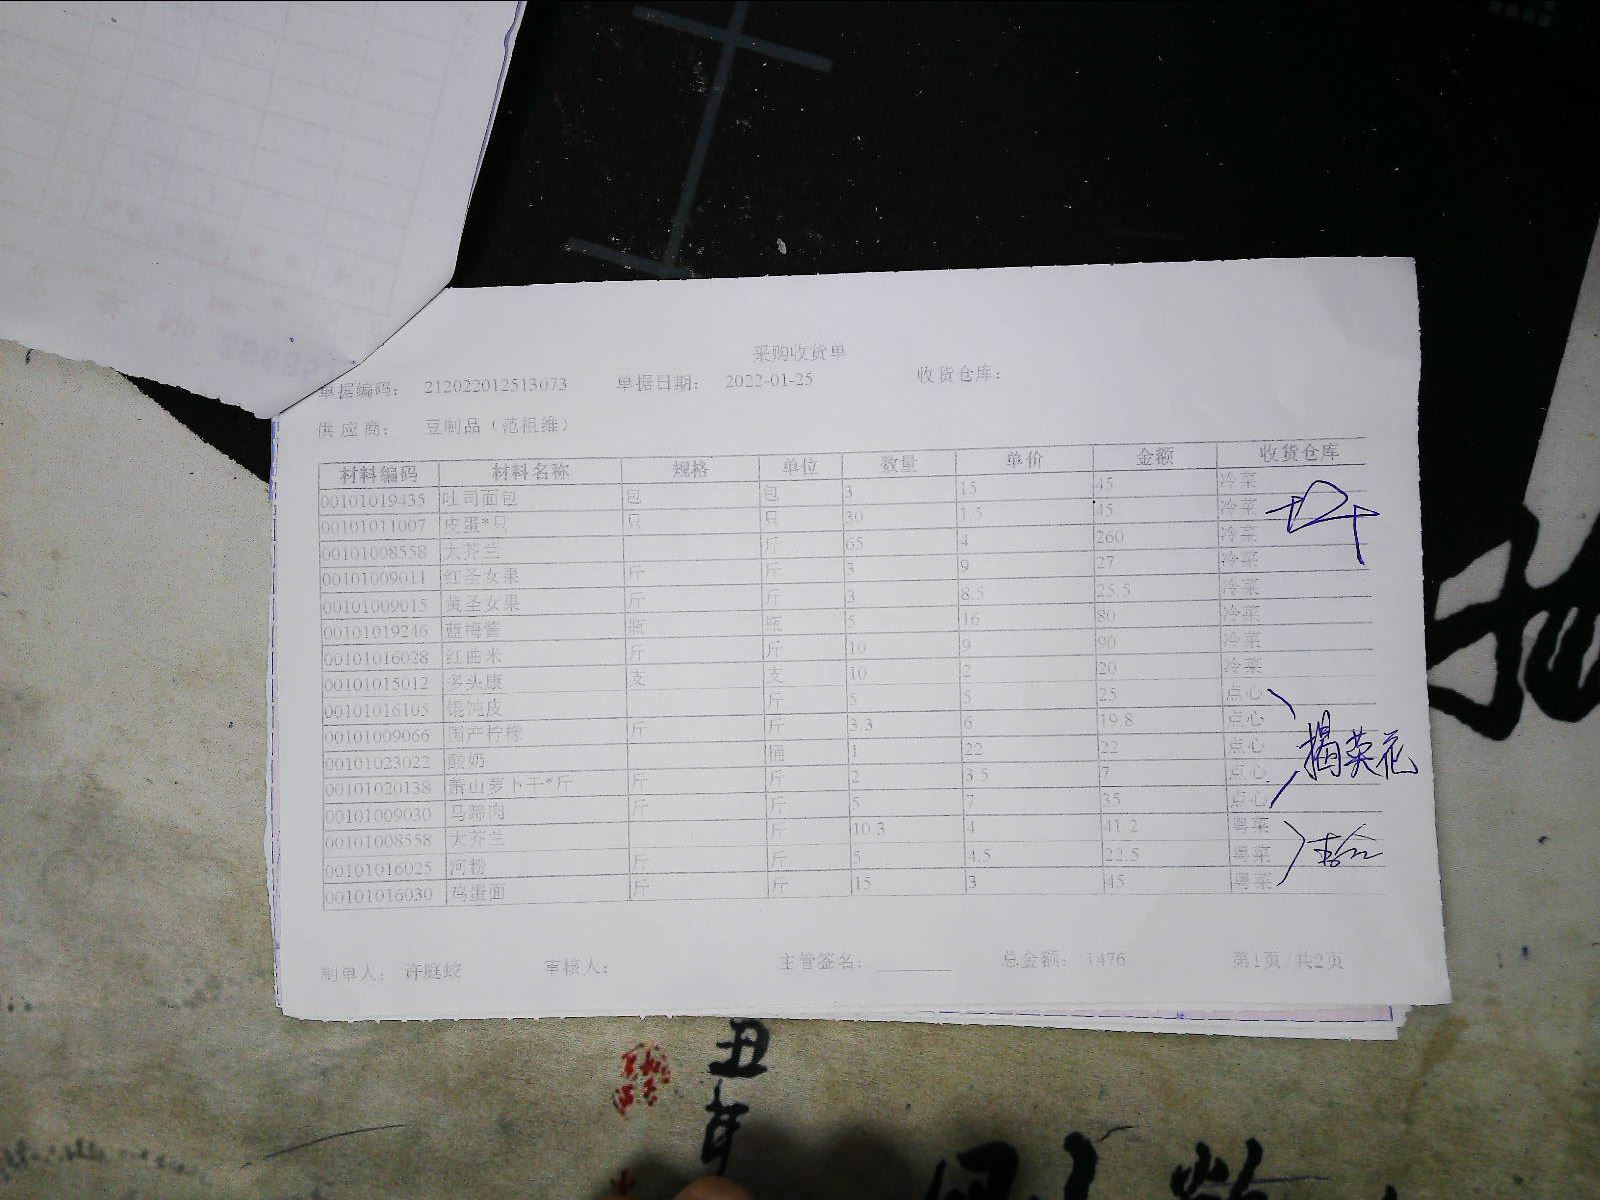 采购收货单
单据编码： 212022012513073 单据日期： 2022-01-25 收货仓库：
供应商： 豆制品（范祖维）
材料编码 材料名称 规格 单位 数量 单价 金额 收货仓库
00101019435 吐司面包 包 包 3 15 45 冷菜
00101011007 皮蛋*只 只 只 30 1.5 45 冷菜
00101008558 大芥兰 斤 65 4 260 冷菜
00101009011 红圣女果 斤 斤 3 9 27 冷菜
00101009015 黄圣女果 斤 斤 3 8.5 25.5 冷菜
00101019246 蓝梅酱 瓶 瓶 5 16 80 冷菜
00101016028 红曲米 斤 斤 10 9 90 冷菜
00101015012 多头康 支 支 10 2 20 冷菜
00101016105 馄饨皮 斤 5 5 25 点心
00101009066 国产柠檬 斤 斤 3.3 6 19.8 点心
00101023022 酸奶 桶 1 22 22 点心
00101020138 萧山萝卜干*斤 斤 斤 2 3.5 7 点心
00101009030 马蹄肉 斤 斤 5 7 35 点心
揭英花
00101008558 大芥兰 斤 10.3 4 41.2 粤菜
00101016025 河粉 斤 斤 5 4.5 22.5 粤菜
00101016030 鸡蛋面 斤 斤 15 3 45 粤菜
制单人： 许庭蛟 审核人： 主管签名： 总金额： 1476 第1页/共2页
丑年